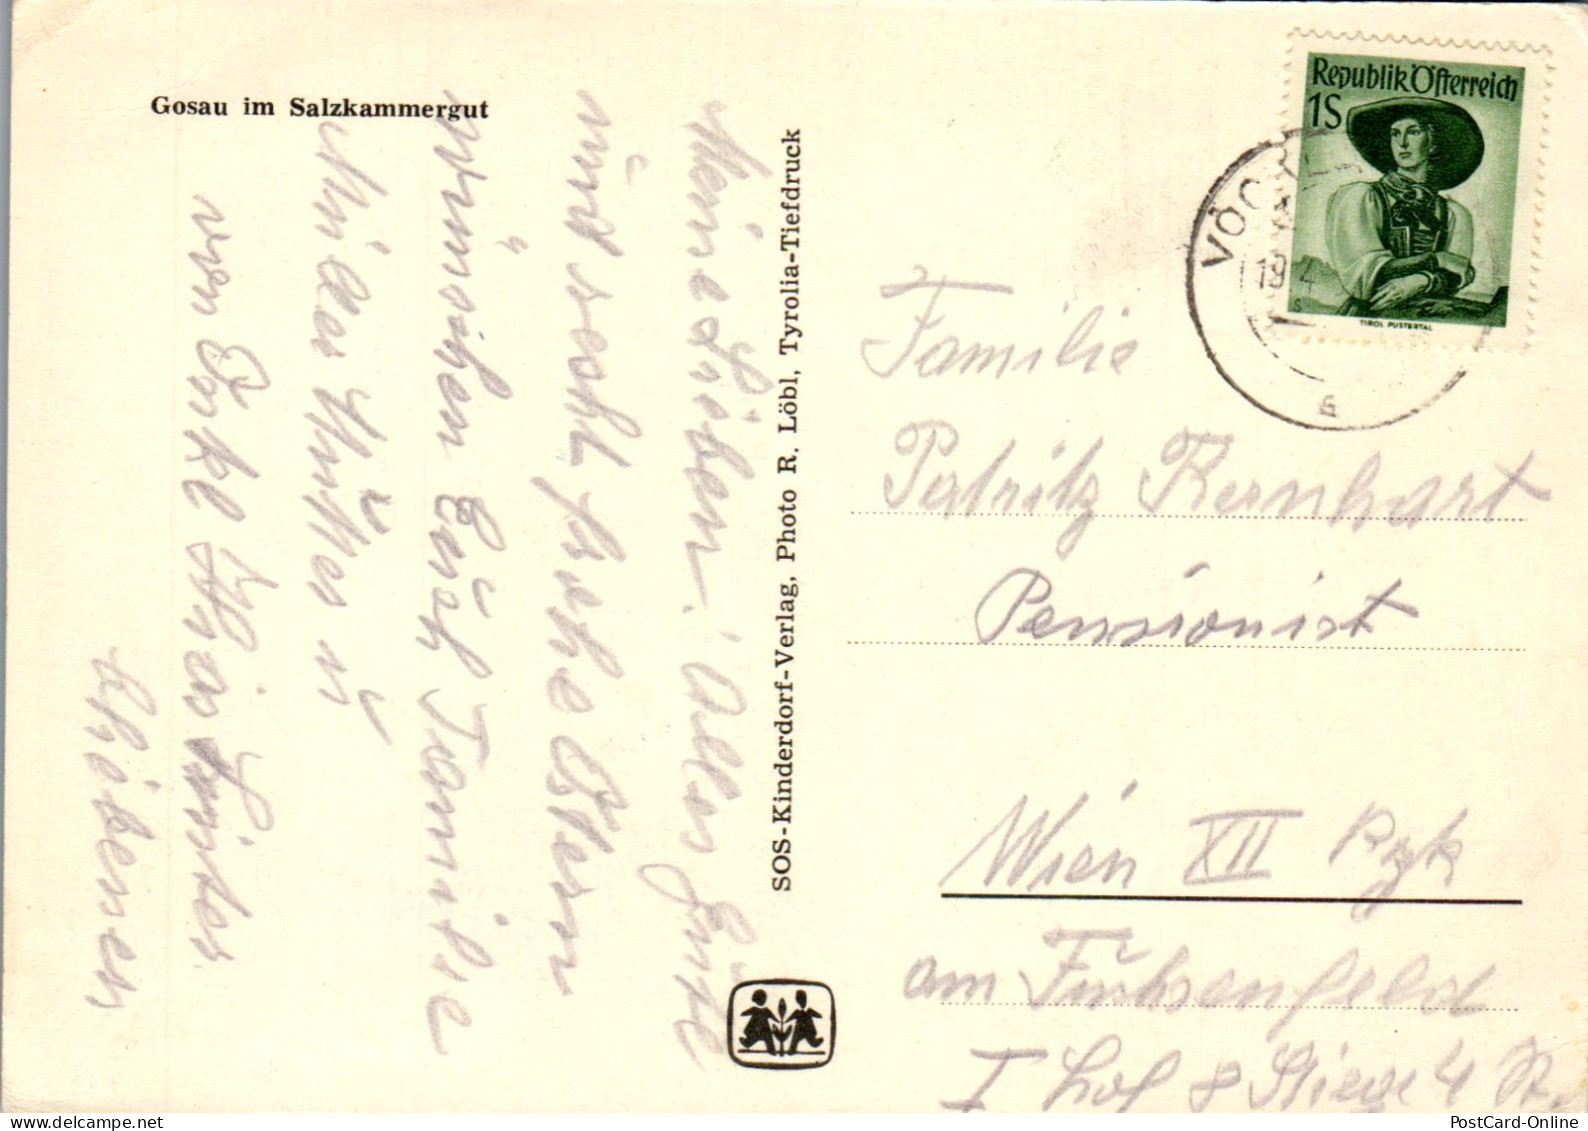 Gosau im Salzkammergut
Meine Lieben! Alles Gute
und recht frohe Ostern
wünschen Euch Familie
Müller Mutter ü
von Onkel
SOS-Kinderdorf-Verlag, Photo R. Löbl, Tyrolia-Tiefdruck
Republik Österreich
1S
TIROL PUSTERTAL
VÖCK
19.4
Familie
Patritz Rernhart
Pensionist
Wien XII Bzk
am Fuchsenfeld
I hof 8 Stiege 4 St.
PostCard-Online